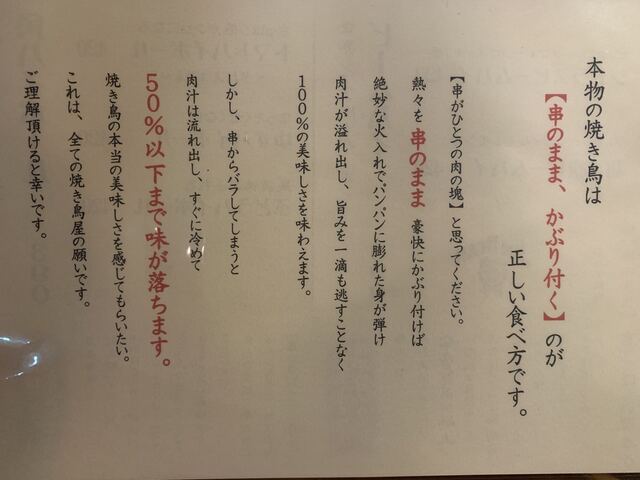 本物の焼き鳥は
【串のまま、かぶり付く】のが
正しい食べ方です。
【串がひとつの肉の塊】と思ってください。
熱々を 串のまま 豪快にかぶり付けば
絶妙な火入れでパンパンに膨れた身が弾け
肉汁が溢れ出し、旨みを一滴も逃すことなく
100%の美味しさを味わえます。
しかし、串からバラしてしまうと
肉汁は流れ出し、すぐに冷めて
50%以下まで味が落ちます。
焼き鳥の本当の美味しさを感じてもらいたい。
これは、全ての焼き鳥屋の願いです。
ご理解頂けると幸いです。